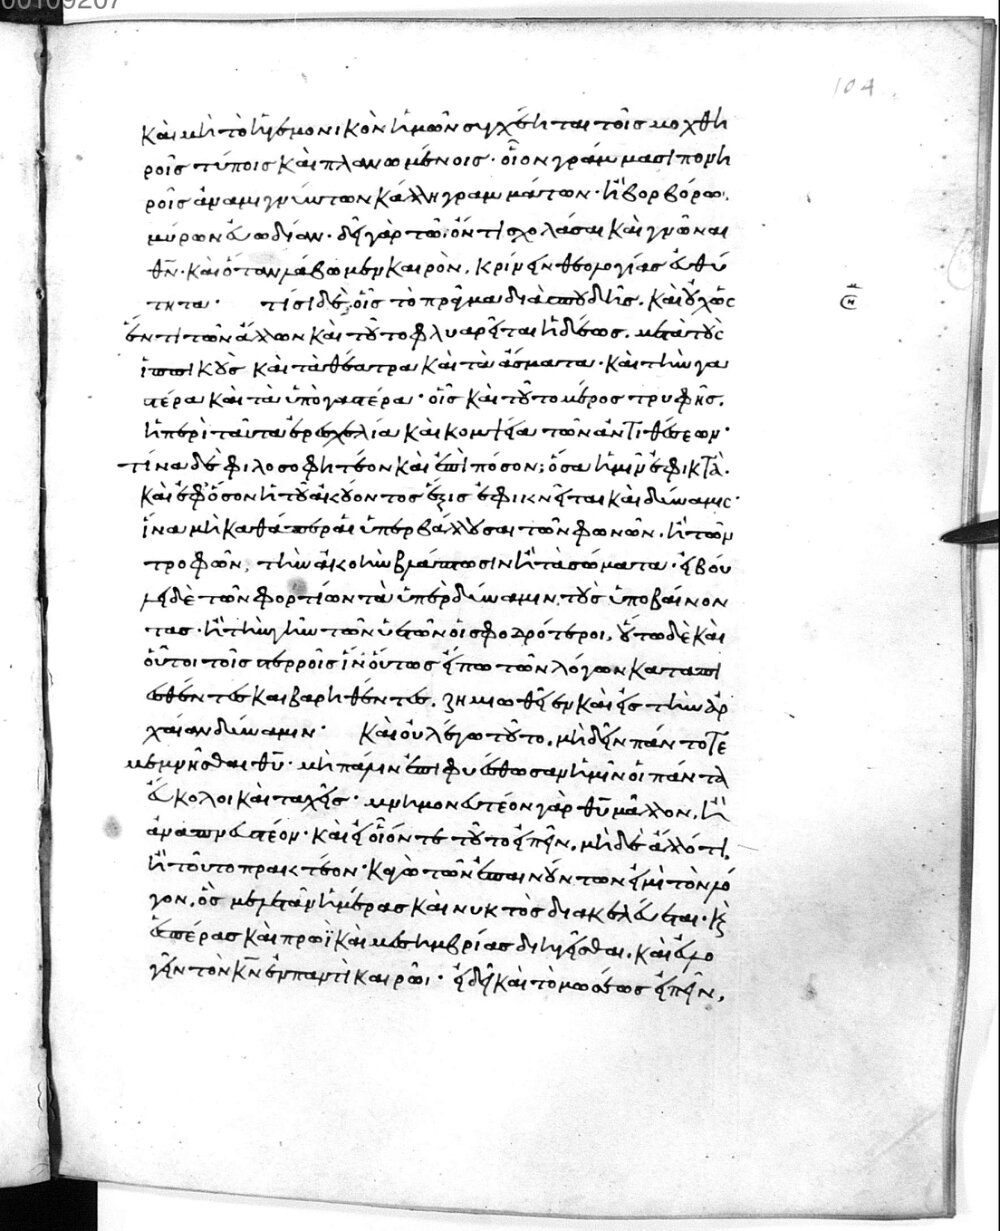 104
καὶ μὴ τὸ ἡγεμονικὸν ἡμῶν συγχέηται τοῖς μοχθη
ροῖς τύποις καὶ πλανωμένοις· οἷον γράμμασι πονη
ροῖς ἀναμιγνύντων κάλλη γραμμάτων· ἢ βορβόρω,
μύρων εὐωδίαν. δεῖ γὰρ τῶ ὄντι σχολάσαι καὶ γνῶναι
θν̄· καὶ ὅταν λάβωμεν καιρὸν, κρίνειν θεολογίας εὐθύ
τητα· τίσι δὲ, οἷς τὸ πρᾶγμα διὰ σπουδῆς. καὶ οὐχ ὡς
ἕν τι τῶν ἄλλων καὶ τοῦτο φλυαρεῖται ἡδέως. μετὰ τοὺς
ἱππικοὺς καὶ τὰ θέατρα καὶ τὰ ἄσματα· καὶ τὴν γα
στέρα καὶ τὰ ὑπὸ γαστέρα· οἷς καὶ τοῦτο μέρος τρυφῆς.
ἡ περὶ ταῦτα ἐρεσχελία καὶ κομψεία τῶν ἀντιθέσεων·
τίνα δὲ φιλοσοφητέον καὶ ἐπὶ πόσον; ὅσα ἡμῖν ἐφικτὰ.
καὶ ἐφ' ὅσον ἡ τοῦ ἀκούοντος ἕξις ἐφικνεῖται καὶ δύναμις·
ἵνα μὴ καθάπερ αἱ ὑπερβάλλουσαι τῶν φωνῶν. ἢ τῶν
τροφῶν, τὴν ἀκοὴν βλάπτωσιν ἢ τὰ σώματα· εἰ βού
λει δὲ τῶν φορτίων τὰ ὑπὲρ δύναμιν, τοὺς ὑποβαίνον
τας· ἢ τὴν γῆν τῶν ὑετῶν οἱ σφοδρότεροι, οὕτω δὲ καὶ
οὗτοι τοῖς στερροῖς ἵν' οὕτως εἴπω τῶν λόγων καταπι
εσθέντες καὶ βαρηθέντες. ζημιωθεῖεν καὶ εἰς τὴν ἀρ
χαίαν δύναμιν· καὶ οὐ λέγω τοῦτο. μὴ δεῖν πάντοτε
μεμνῆσθαι θῡ· μὴ πάλιν ἐπιφυέσθωσαν ἡμῖν οἱ πάντα
εὔκολοι καὶ ταχεῖς· μνημονευτέον γὰρ θῡ μᾶλλον, ἢ
ἀναπνευστέον· καὶ εἰ οἷόν τε τοῦτο εἰπεῖν, μὴ δὲ ἄλλό τι,
ἢ τοῦτο πρακτέον· κἀγὼ τῶν ἐπαινούντων εἰμὶ τὸν λό
γον, ὃς μελετᾶν ἡμέρας καὶ νυκτὸς διακελεύεται· κ̀
ἑσπέρας καὶ πρωῒ καὶ μεσημβρίας διηγεῖσθαι. καὶ εὐλο
γεῖν τὸν κν̄ ἐν παντὶ καιρῶ· εἰ δεῖ καὶ τὸ μωσέως εἰπεῖν,